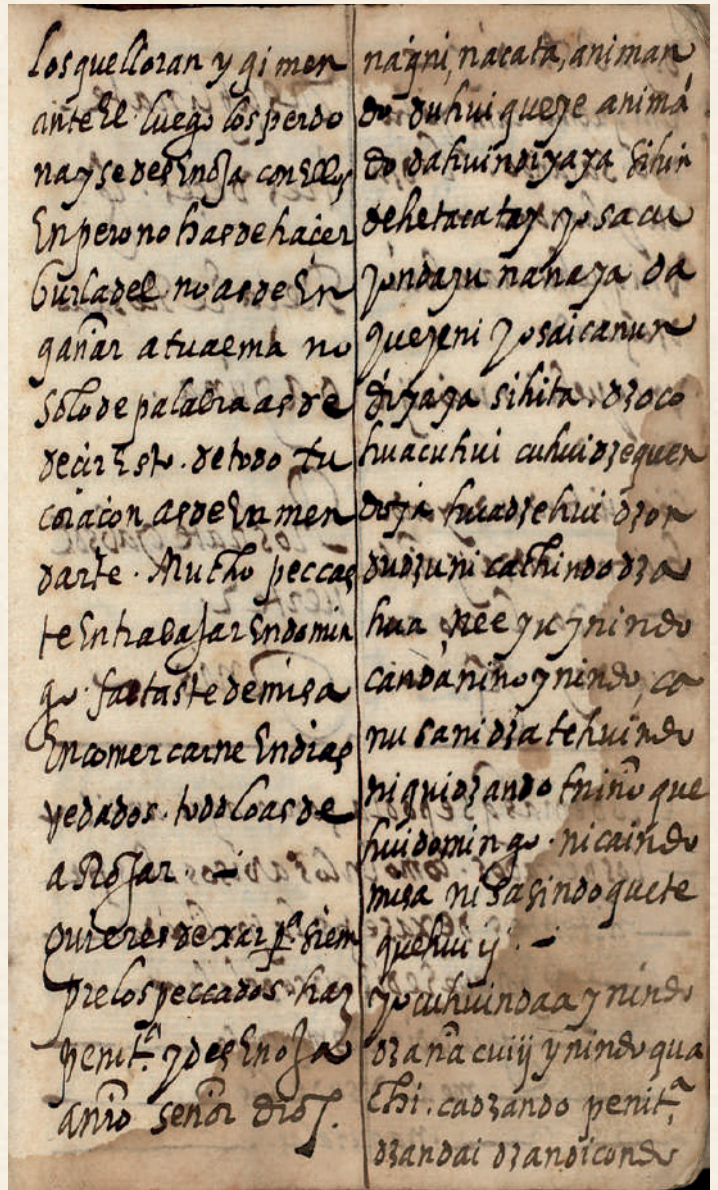 los que lloran y gimen
ante El luego los perdo
na y se desEnoJa con Ellos
Enpero no has de hacer
burla del no as de En
gañar a tu alma no
solo de palabra as de
decir Esto. de todo tu
coracon as de Enmen
darte. Mucho peccas
te En trabaJar En domin
go. faltaste de misa
En comer carne En dias
vedados. todo lo as de
aRoJar —
quieres dexar pa siem
pre los peccados. haz
penita. y desEnoJa
a nro señor dios.
nagni, nacata, animan
do duhui queye anima
do dahuindiyaya sihin
dehetacatay yosacu
yondayu nanaya da
queyeni yosaicanun
diyaya sihita. dzoco
huacuhui cuhuidzequen
diya huadzehui dzon
dudzuni cachindodza
hua ñee yuynindo
candániño ynindo, ca
nu sanidzatehuindo
niquidzando tniño que
hui domingo. nicaindo
misa nisasindo quete
quehui ij. —
yocuhuindaa ynindo
dzana cuiij ynindo qua
chi. cadzando penita,
dzandai dzandicondo